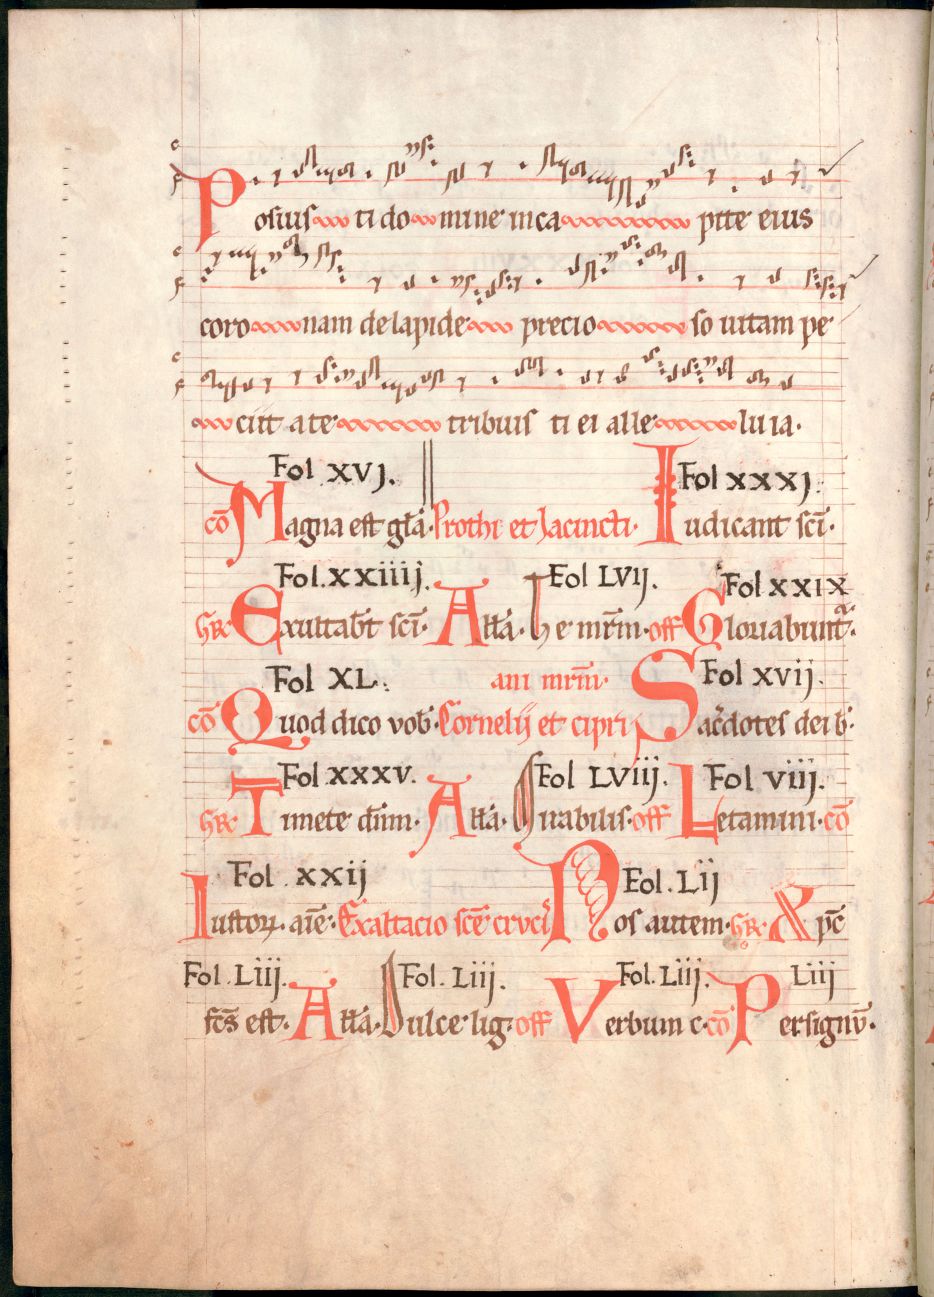 Posuis ti do mine in ca pite eius
coro nam de lapide precio so uitam pe
ciit a te tribuis ti ei alle lu ia.
Fol XVJ. Fol XXXJ.
cō Magna est gl̄a. Prothi et Jacincti. Iudicant scī.
Fol. XXIIIJ. Fol LVIJ. Fol XXIX
Gr̄. Exultab̄t scī. All̄a. he mr̄m. off Gloriabunt᷑.
Fol XL. ani mr̄m. Fol XVIJ.
cō Quod dico vob. Cornelij et cipri Sac̄dotes dei b.
Fol XXXV. Fol LVIIJ. Fol VIIJ.
Gr̄. Timete dn̄m. All̄a. Mirabilis. off Letamini. cō
Fol. XXIJ Fol. LIJ
Iustoꝝ. aīe. Exaltacio scē cruci Nos autem. Gr̄. Xpc̄
Fol. LIIJ. Fol. LIIJ. Fol. LIIJ. LIIJ
fcs̄ est. All̄a. Dulce lig. off Verbum c. cō Per signū.